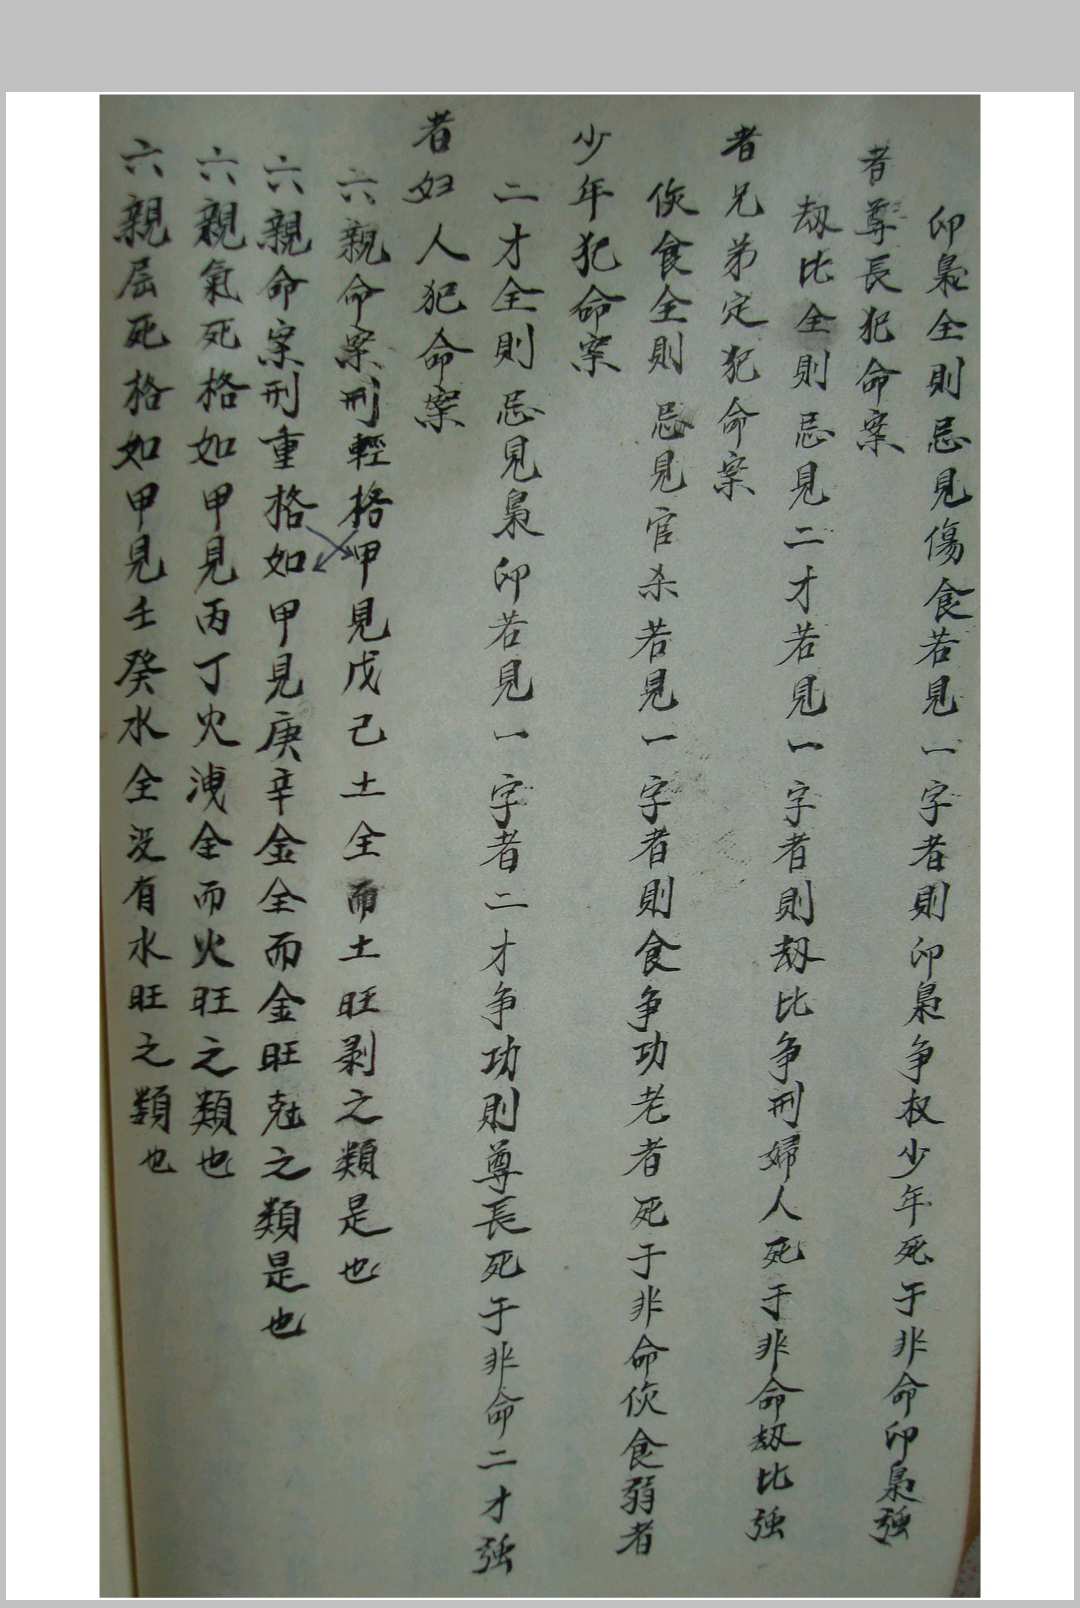 卯梟全則忌見傷食若見一字者則卯梟争权少年死于非命卯梟強
者尊長犯命案
劫比全則忌見二才若見一字者則劫比争刑婦人死于非命劫比強
者兄弟定犯命案
伤食全則忌見官杀若見一字者則食争功老者死于非命伤食弱者
少年犯命案
二才全則忌見梟卯若見一字者二才争功則尊長死于非命二才強
者妇人犯命案
六親命案刑輕格甲見戊己土全而土旺剥之類是也
六親命案刑重格如甲見庚辛金全而金旺尅之類是也
六親氣死格如甲見丙丁火洩全而火旺之類也
六親屈死格如甲見壬癸水全没有水旺之類也